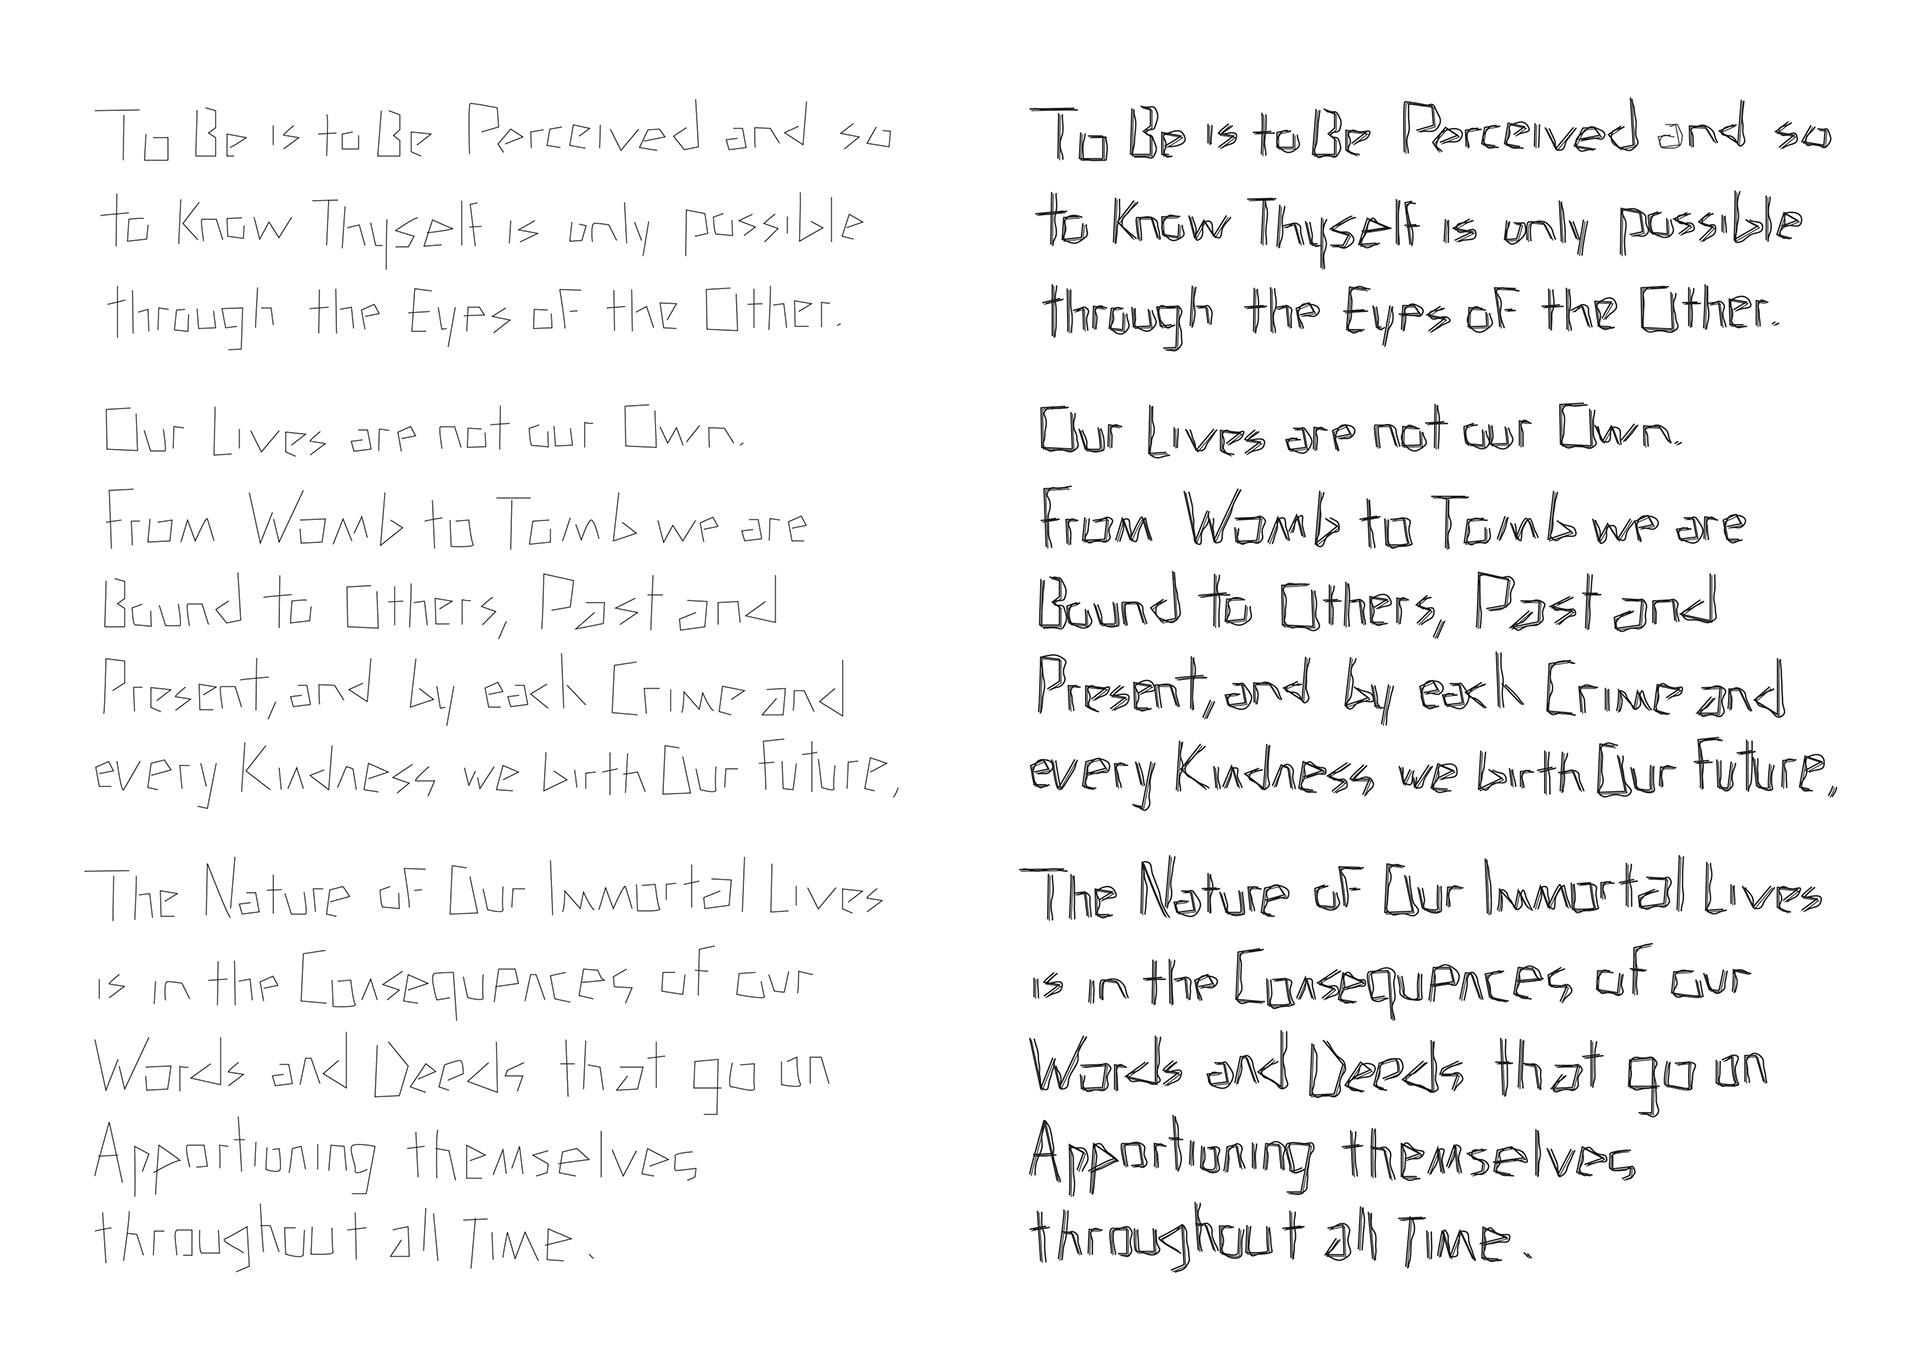 To Be is to Be Perceived and so
to Know Thyself is only possible
through the Eyes of the Other.
Our Lives are not our Own.
From Womb to Tomb we are
Bound to Others, Past and
Present, and by each Crime and
every Kindness we birth Our Future,
The Nature of Our Immortal Lives
is in the Consequences of our
Words and Deeds that go on
Apportioning themselves
throughout all Time.
To Be is to Be Perceived and so
to Know Thyself is only possible
through the Eyes of the Other.
Our Lives are not our Own.
From Womb to Tomb we are
Bound to Others, Past and
Present, and by each Crime and
every Kindness we birth Our Future,
The Nature of Our Immortal Lives
is in the Consequences of our
Words and Deeds that go on
Apportioning themselves
throughout all Time.